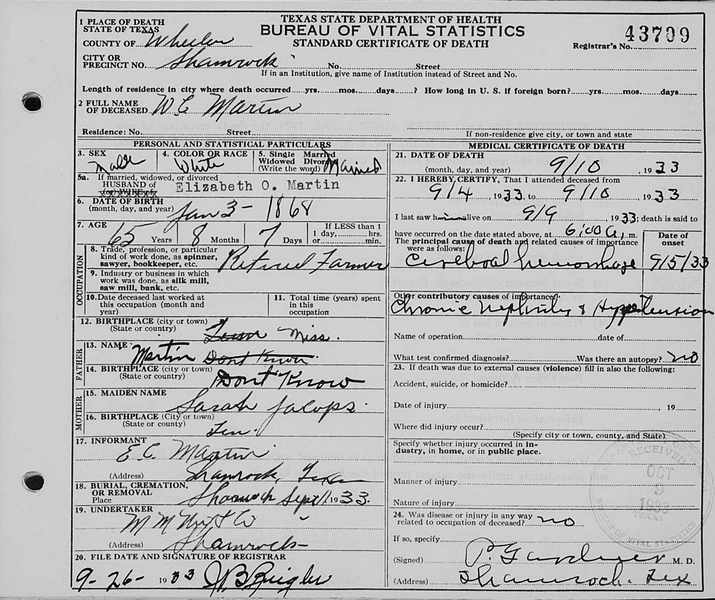 TEXAS STATE DEPARTMENT OF HEALTH
BUREAU OF VITAL STATISTICS
STANDARD CERTIFICATE OF DEATH
43709
Registrar's No.
1 PLACE OF DEATH
STATE OF TEXAS
COUNTY OF Wheeler
CITY OR
PRECINCT NO. Shamrock No. Street
If in an Institution, give name of Institution instead of Street and No.
Length of residence in city where death occurred yrs. mos. days? How long in U. S. if foreign born? yrs. mos. days?
2 FULL NAME
OF DECEASED W E Martin
Residence: No. Street
If non-residence give city, or town and state
PERSONAL AND STATISTICAL PARTICULARS
3. SEX
Male
4. COLOR OR RACE
White
5. Single Married
Widowed Divorced
(Write the word) Married
5a. If married, widowed, or divorced
HUSBAND of
(or) WIFE of
Elizabeth O. Martin
6. DATE OF BIRTH
(month, day, and year) Jan 3 - 1868
7. AGE
65 Years 8 Months 7 Days
IF LESS than
1 day, hrs.
or min.
OCCUPATION
8. Trade, profession, or particular
kind of work done, as spinner,
sawyer, bookkeeper, etc. Retired Farmer
9. Industry or business in which
work was done, as silk mill,
saw mill, bank, etc.
10. Date deceased last worked at
this occupation (month and
year)
11. Total time (years) spent in
this occupation
12. BIRTHPLACE (city or town)
(State or country) Miss.
FATHER
13. NAME Martin Dont Know
14. BIRTHPLACE (city or town)
(State or country) Dont Know
MOTHER
15. MAIDEN NAME
Sarah Jacops
16. BIRTHPLACE (City or town)
(State or country) Ten.
17. INFORMANT
E C Martin
(Address) Shamrock, Texas
18. BURIAL, CREMATION,
OR REMOVAL
Place Shamrock Sept 11 1933.
19. UNDERTAKER
(Address) Shamrock
20. FILE DATE AND SIGNATURE OF REGISTRAR
9-26- 1933
MEDICAL CERTIFICATE OF DEATH
21. DATE OF DEATH
(month, day, and year) 9/10, 1933
22. I HEREBY, CERTIFY, That I attended deceased from
9/4, 1933 to 9/10, 1933
I last saw him alive on 9/9, 1933; death is said to
have occurred on the date stated above, at 6:00 a. m.
The principal cause of death and related causes of importance
were as follows:
Date of
onset
Cerebral hemorrhage 9/5/33
Other contributory causes of importance:
Chronic Nephritis & Hypertension
Name of operation date of
What test confirmed diagnosis? Was there an autopsy? no
23. If death was due to external causes (violence) fill in also the following:
Accident, suicide, or homicide?
Date of injury 19
Where did injury occur?
(Specify city or town, county, and State)
Specify whether injury occurred in in-
dustry, in home, or in public place.
Manner of injury
Nature of injury
24. Was disease or injury in any way
related to occupation of deceased? no
If so, specify
(Signed) P. Gardner M. D.
(Address) Shamrock. Tex
RECEIVED
OCT
1933